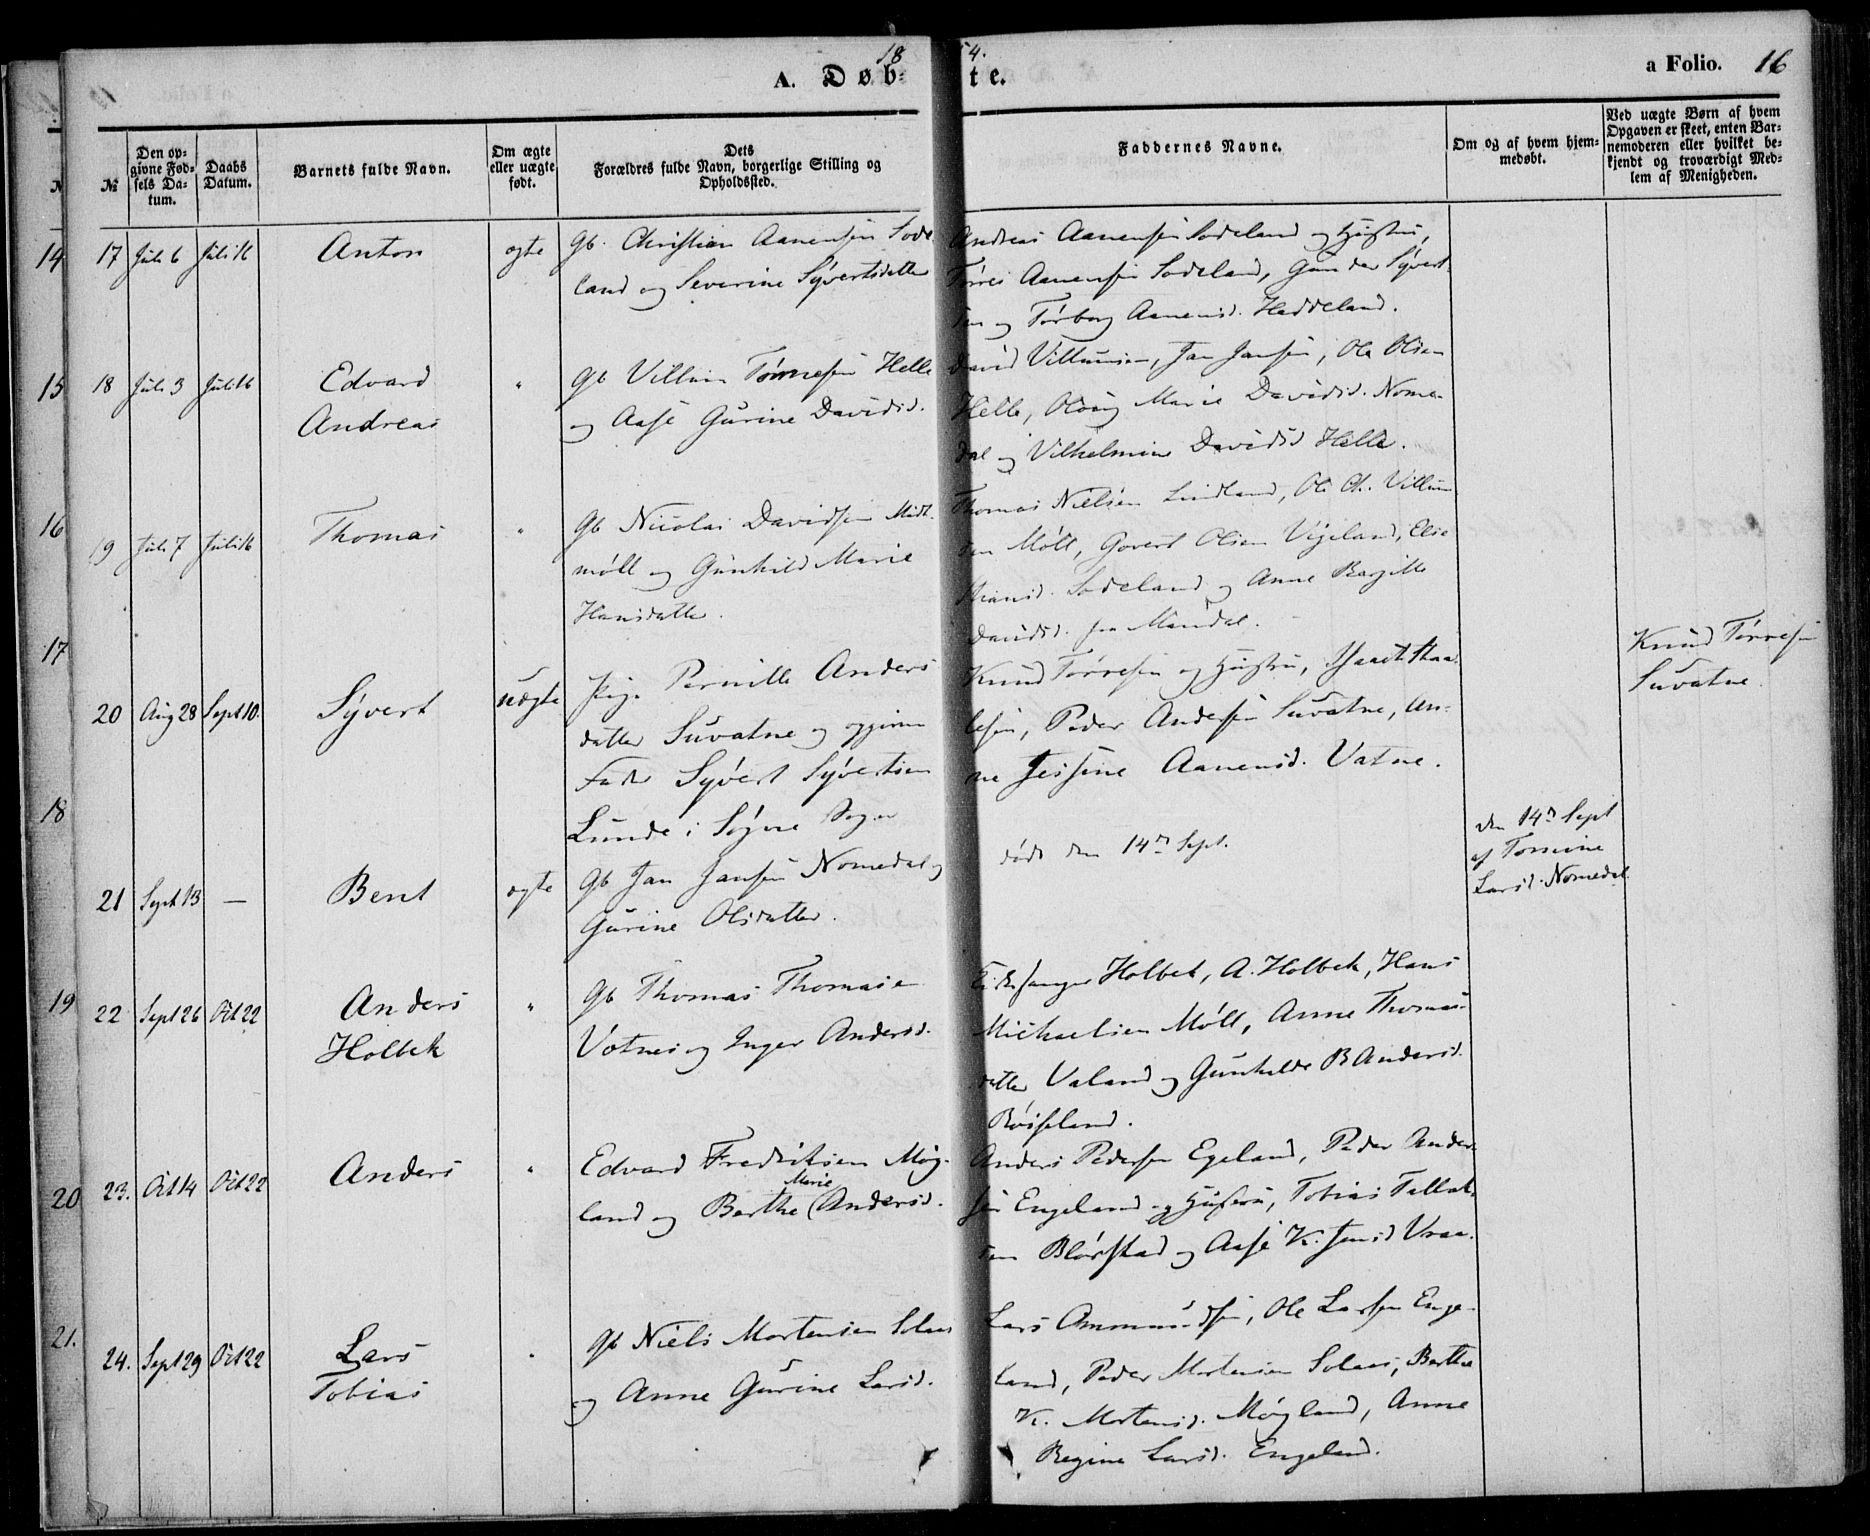 1854.
A. Døbte.
a Folio. 16
№
Den opgivne Fødsels Datum.
Daabs Datum.
Barnets fulde Navn.
Om ægte eller uægte født.
Dets Forældres fulde Navn, borgerlige Stilling og Opholdssted.
Faddernes Navne.
Om og af hvem hjemmedøbt.
Ved uægte Børn af hvem Opgaven er skeet, enten Barnemoderen eller hvilket bekjendt og troværdigt Medlem af Menigheden.
14
17 Juli 6 Juli 16 Anton ægte Gb. Christian Aanensen Sode
land og Severine Syvertsdatter
Andreas Aanensen Sodeland og Hustru,
Tørres Aanensen Sodeland, Gunder Syvert
sen og Torborg Aanensd. Haddeland.
15
18 Juli 3 Juli 16 Edvard " Gb Villum Tørresen Helle
Andreas og Aase Gurine Davidsd.
David Villumsen, Jan Jansen, Ole Olsen
Helle, Marie Davidsd. Nome-
dal og Vilhelmine Davidsd Helle.
16
19 Juli 7 Juli 16 Thomas " Gb Nicolai Davidsen Midt
møll og Gunhild Marie
Hansdatter.
Thomas Nielsen Lindland, Ole Ch. Villum
sen Møll, Govert Olsen Vigeland, Elie
Sodeland og Anne Bergitte
Davidsd. fra Mandal.
17
20 Aug 28 Sept 10. Syvert uægte Pige Pernille Anders
datter Suvatne og opgiven
Fader Syvert Syvertsen
Lunde i Søgne Sogn
Knud Tørresen og Hustru, Isaach Staa
lesen, Peder Andersen Suvatne, An-
ne Jessine Aanensd. Vatne.
Knud Tørresen
Suvatne.
18
21 Sept 13 — Bent ægte Gb Jan Jansen Nomedal og
Gurine Olsdatter.
døde den 14de Sept.
den 14de Sept
af Tomine
Larsd. Nomedal
19
22 Sept 26 Oct 22 Anders " Gb Thomas Thomasen
Holbek Votnes og Inger Andersd.
Kirkesanger Holbek, A. Holbek, Hans
Michaelsen Møll, Anne Thomas-
datter Valand og Gunhilde B Andersd.
Røiseland.
20
23. Oct 14 Oct 22 Anders " Edvard Fredriksen Møg-
land og Berthe Marie Andersd.
Anders Pedersen Egeland, Peder Ander-
sen Engeland og Hustru, Tobias Tallak-
sen Blørstad og Aase K. Jensd Vraa.
21.
24. Sept 29 Oct 22 Lars " Gb Niels Mortensen Solaas
Tobias og Anne Gurine Larsd.
Lars Ommundsen, Ole Larsen Enge-
land, Peder Mortensen Solaas, Berthe
K. Mortensd. Møgland, Anne
Regine Larsd. Engeland.